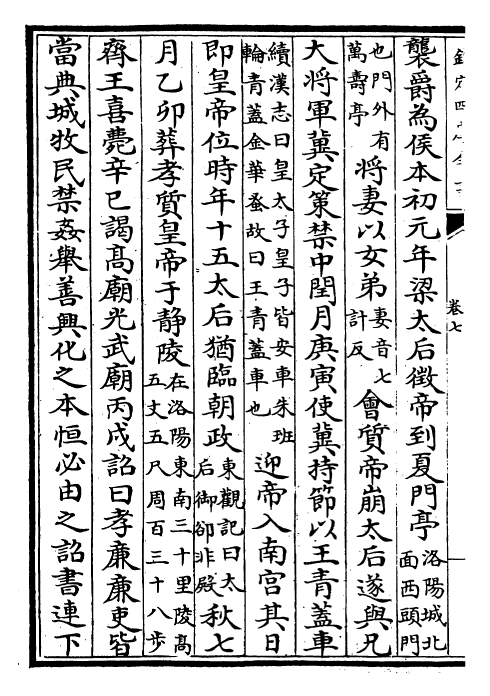 欽定四庫全書
卷七
襲爵為侯本初元年梁太后徵帝到夏門亭洛陽城北面西頭門
也門外有萬壽亭將妻以女弟妻音七計反會質帝崩太后遂與兄
大將軍冀定策禁中閏月庚寅使冀持節以王青蓋車
續漢志曰皇太子皇子皆安車朱班輪青蓋金華蚤故曰王青蓋車也迎帝入南宫其日
即皇帝位時年十五太后猶臨朝政東觀記曰太后御卻非殿秋七
月乙卯葬孝質皇帝于静陵在洛陽東南三十里陵高五丈五尺周百三十八步
齊王喜薨辛巳謁髙廟光武廟丙戌詔曰孝廉廉吏皆
當典城牧民禁姦舉善興化之本恒必由之詔書連下